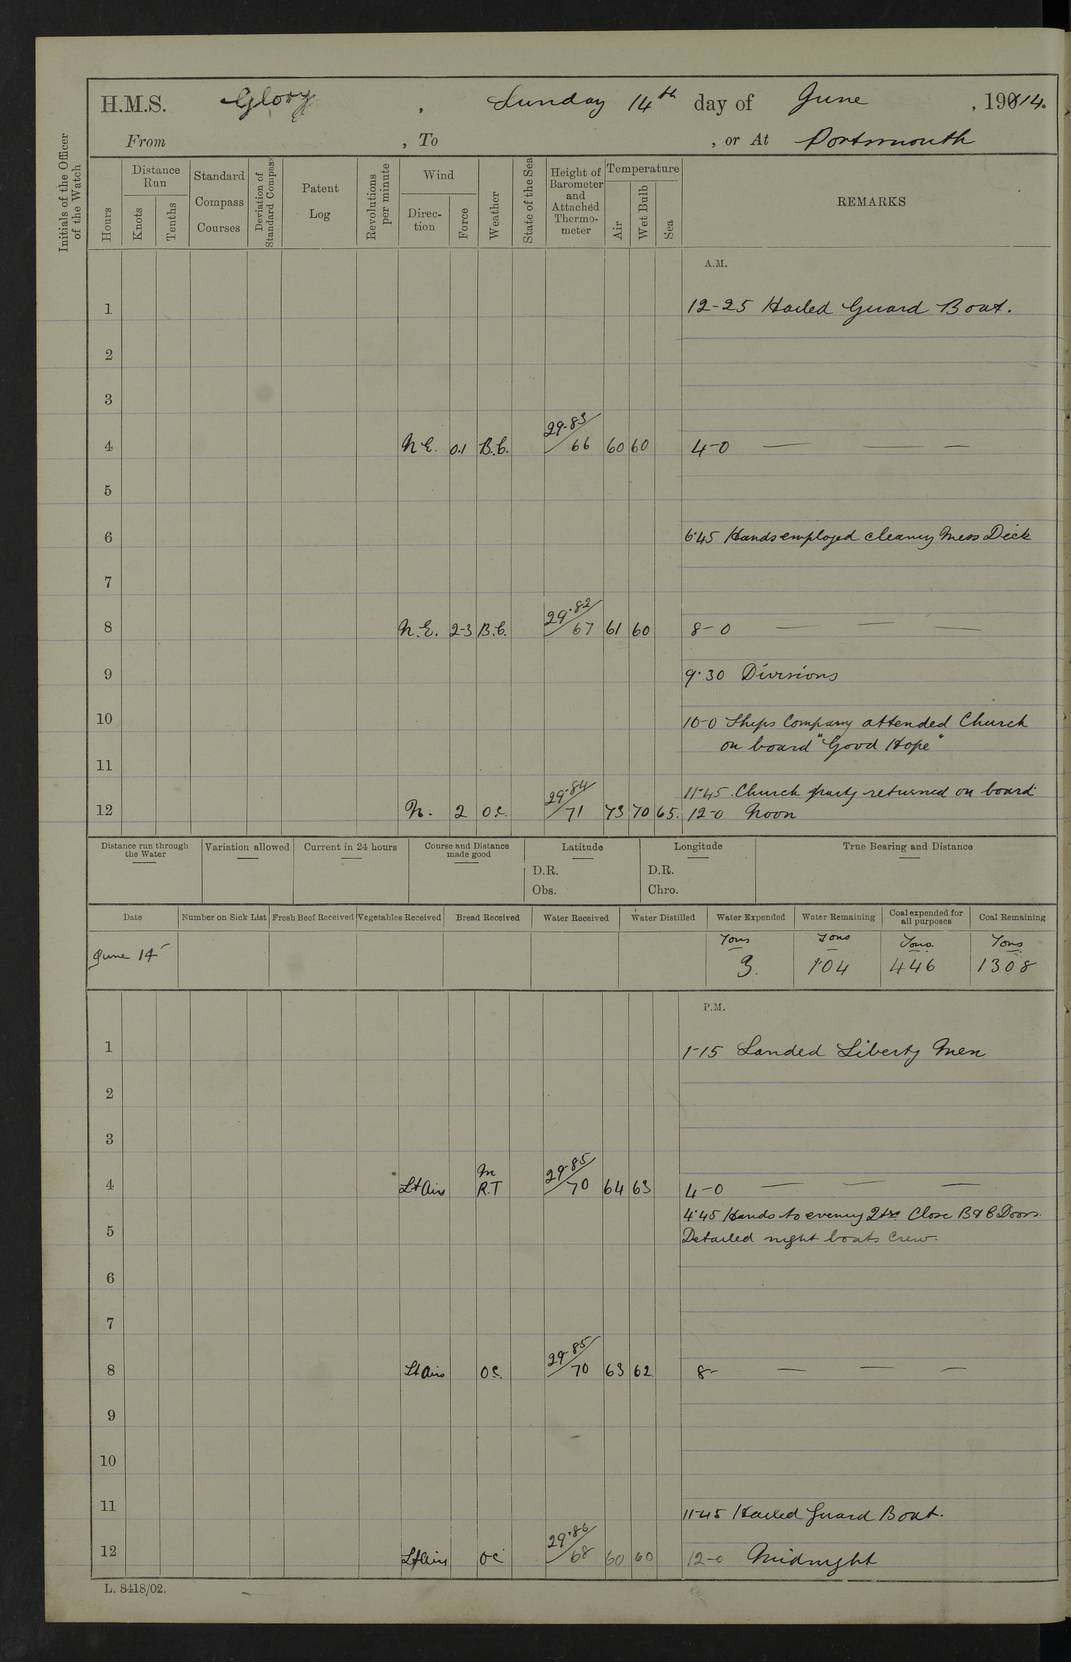 H.M.S. Glory, Sunday 14th day of June, 1914.
From , To , or At Portsmouth
Initials of the Officer of the Watch
Hours
Distance Run
Knots
Tenths
Standard Compass Courses
Deviation of Standard Compass
Patent Log
Revolutions per minute
Wind
Direction
Force
Weather
State of the Sea
Height of Barometer and Attached Thermometer
Temperature
Air
Wet Bulb
Sea
REMARKS
A.M.
1 12-25 Hailed Guard Boat.
2
3
4 N.E. 0.1 B.C. 29.83/66 60 60 4-0 — — —
5
6 6.45 Hands employed cleaning Mess Deck
7
8 N.E. 2-3 B.C. 29.82/67 61 60 8-0 — — —
9 9.30 Divisions
10 10-0 Ships Company attended Church
on board "Good Hope"
11
11.45. Church party returned on board
12 N. 2 O.C. 29.84/71 73 70 65. 12-0 Noon
Distance run through the Water
Variation allowed
Current in 24 hours
Course and Distance made good
Latitude
D.R.
Obs.
Longitude
D.R.
Chro.
True Bearing and Distance
Date Number on Sick List Fresh Beef Received Vegetables Received Bread Received Water Received Water Distilled Water Expended Water Remaining Coal expended for all purposes Coal Remaining
Tons Tons Tons. Tons
June 14 3. 104 446 1308
P.M.
1 1-15 Landed Liberty Men
2
3
4 Lt Airs M R.T 29.85/70 64 63 4-0 — — —
4.45 Hands to evening Qtrs Close B & C Doors.
5 Detailed night boats crew.
6
7
8 Lt Airs O.C. 29.85/70 63 62 8- — — —
9
10
11 11.45 Hailed Guard Boat.
12 Lt Airs OC 29.86/68 60 60 12-0 Midnight
L. 8418/02.